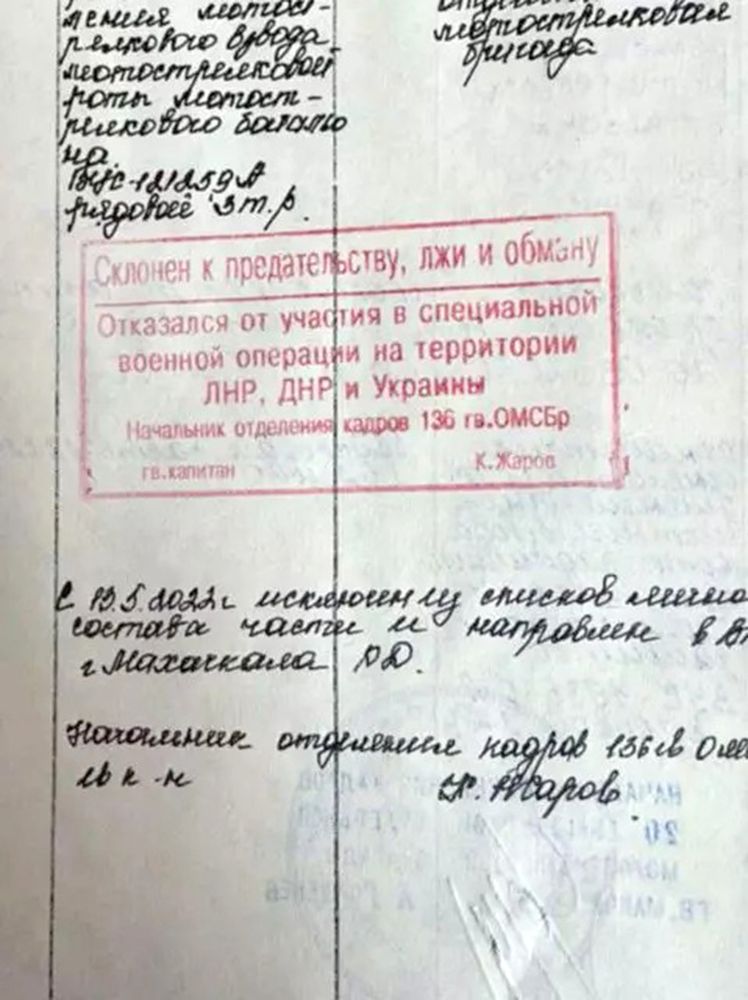 мотост-
релкового взвода
мотострелковой
роты мотост-
релкового батальо
на.
ВУС-121259А
рядовой 3 т.р.
мотострелковая
бригада
Склонен к предательству, лжи и обману
Отказался от участия в специальной
военной операции на территории
ЛНР, ДНР и Украины
Начальник отделения кадров 136 гв.ОМСБр
гв.капитан К.Жаров
С 13.5.2022г исключен из списков лично
состава части и направлен в В
г Махачкала РД.
Начальник отделения кадров 136гв Омс
гв к-н К. Жаров